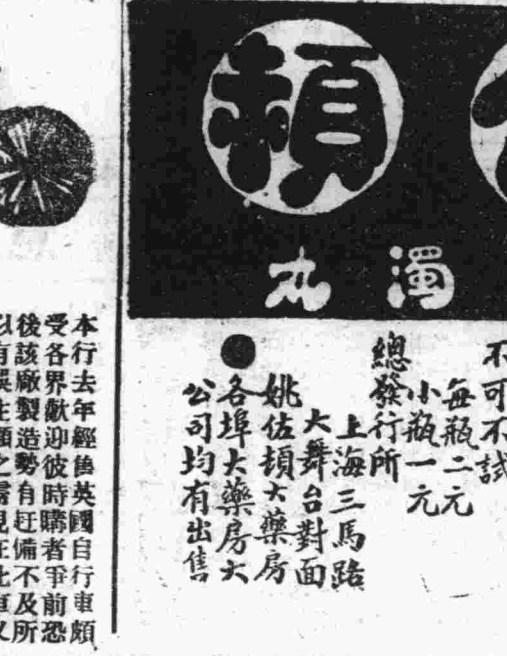 濁丸
不可不試
每瓶二元
小瓶一元
總發行所
上海三馬路
大舞台對面
姚佐頓大藥房
●各埠大藥房大
公司均有出售
本行去年經售英國自行車頗
受各界歡迎彼時購者爭前恐
後該廠製造勢有赶備不及所